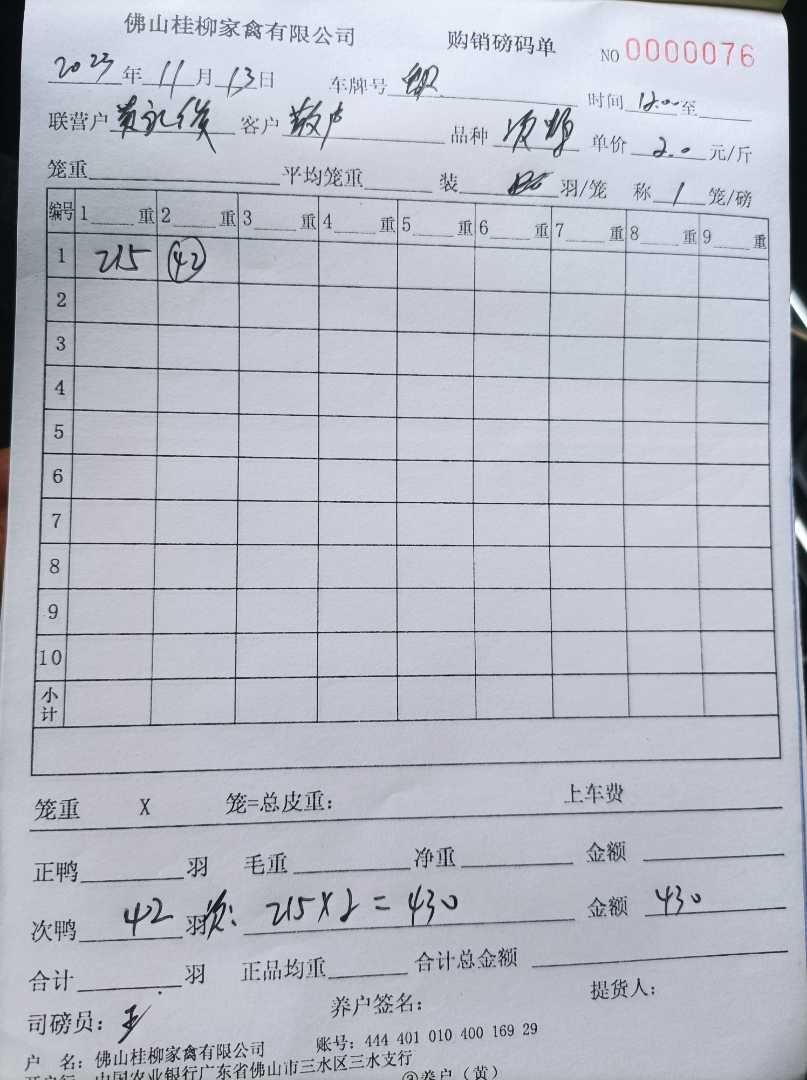 佛山桂柳家禽有限公司 购销磅码单 NO 0000076
2023年11月13日 车牌号 时间 12:00至
联营户 黄 客户 散户 品种 次鸭 单价 2.0 元/斤
笼重 平均笼重 装 羽/笼 称 1 笼/磅
编号 1 重 2 重 3 重 4 重 5 重 6 重 7 重 8 重 9 重
1 215 42
2
3
4
5
6
7
8
9
10
小计
笼重 X 笼=总皮重: 上车费
正鸭 羽 毛重 净重 金额
次鸭 42 羽 次: 215X2=430 金额 430
合计 羽 正品均重 合计总金额
司磅员: 王 养户签名: 提货人:
户 名: 佛山桂柳家禽有限公司 账号: 444 401 010 400 169 29
开户行: 中国农业银行广东省佛山市三水区三水支行 ③养户（黄）